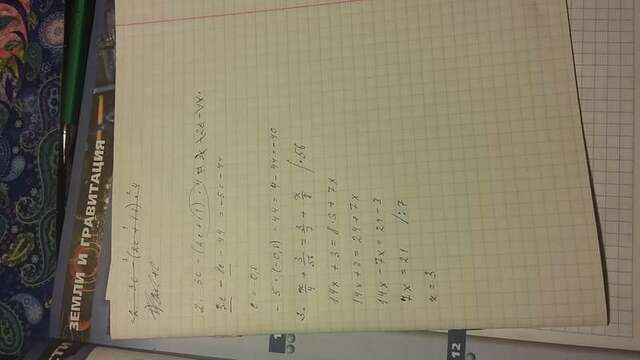 СТИ
ЗЕМЛИ И ГРАВИТАЦИЯ
2. 3c - (2c + 11) · 4
2. 3c - (2c + 11) · 4
3c - 8c - 44 = -5c - 44
c = -0,8
- 5 · (-0,8) - 44 = 4 - 44 = -40
3. x/4 + 3/56 = 3/7 + x/8 /·56
14x + 3 = 8·3 + 7x
14x + 3 = 24 + 7x
14x - 7x = 24 - 3
7x = 21 /:7
x = 3
1
12